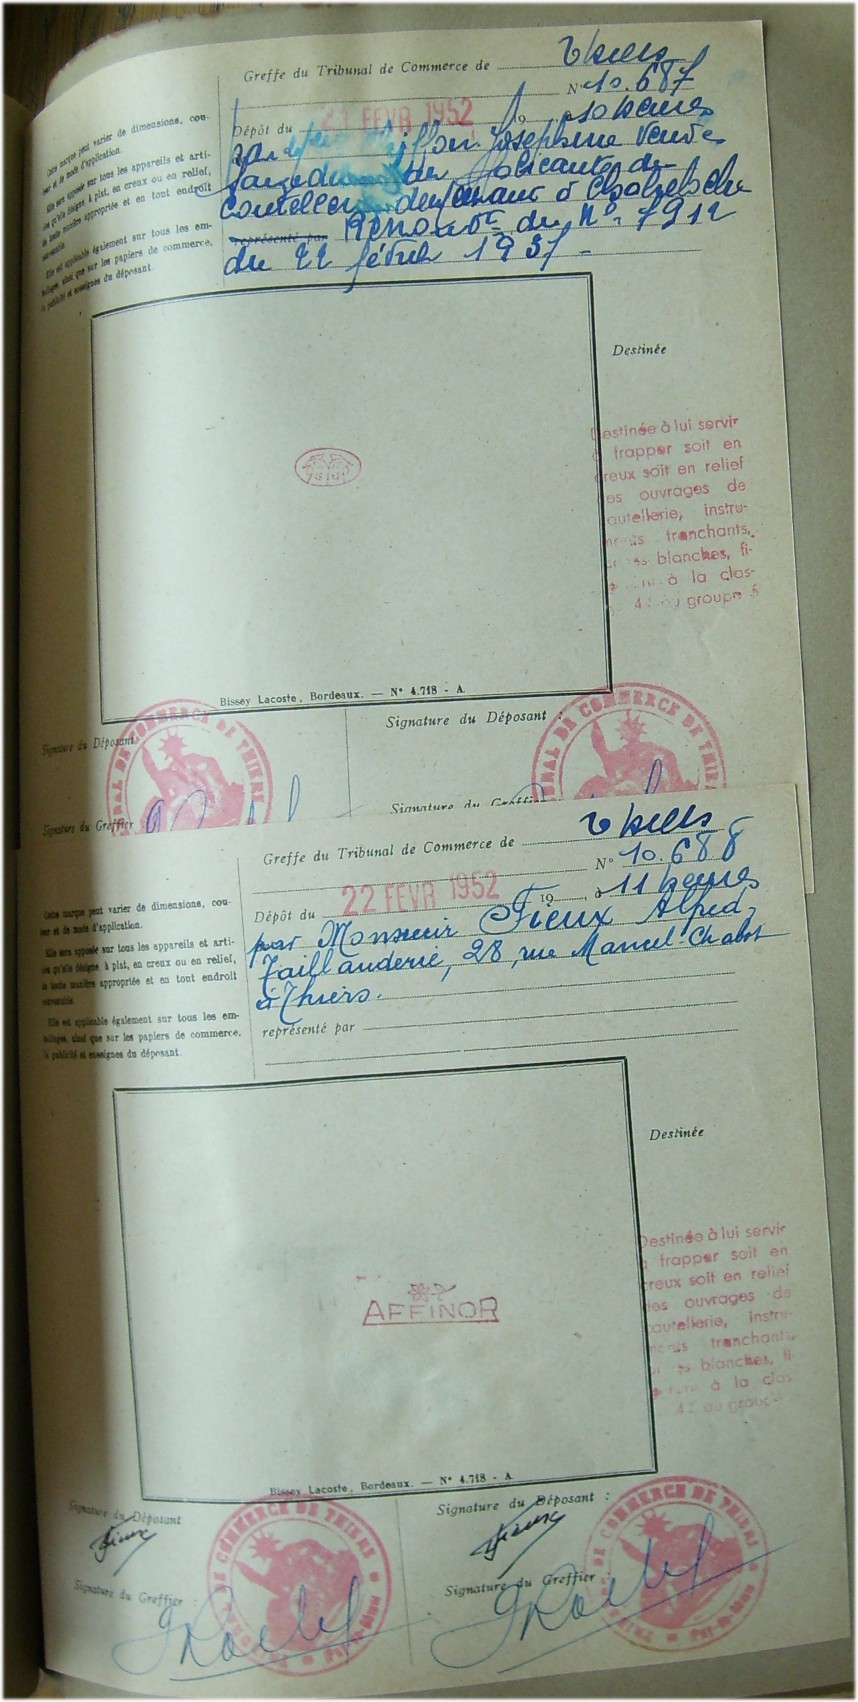 Greffe du Tribunal de Commerce de Thiers
N° 10.687
Dépôt du 21 FEVR 1952 19 à 10 heures
Joséphine
fabricante de
demeurant à
représenté par du N° 7912
du 22 février 1937
Cette marque peut varier de dimensions, cou-
leur et de mode d'application.
Elle sera apposée sur tous les appareils et arti-
cles qu'elle désigne, à plat, en creux ou en relief,
de toute manière appropriée et en tout endroit
convenable.
Elle est applicable également sur tous les em-
ballages, ainsi que sur les papiers de commerce,
la publicité et enseignes du déposant.
Destinée
Destinée à lui servir
à frapper soit en
creux soit en relief
des ouvrages de
coutellerie, instru-
ments tranchants,
blanches, fi-
à la clas-
42 au groupe 5
Bissey Lacoste, Bordeaux. — N° 4.718 - A
Signature du Déposant
Signature du Déposant :
Signature du Greffier
Signature du Greffier
TRIBUNAL DE COMMERCE DE THIERS
TRIBUNAL DE COMMERCE DE THIERS
Greffe du Tribunal de Commerce de Thiers
N° 10.688
Dépôt du 22 FEVR 1952 19 à 11 heures
par Monsieur Fieux Alfred,
Taillanderie, 28, rue Marcel-Chabot
à Thiers.
représenté par
Cette marque peut varier de dimensions, cou-
leur et de mode d'application.
Elle sera apposée sur tous les appareils et arti-
cles qu'elle désigne, à plat, en creux ou en relief,
de toute manière appropriée et en tout endroit
convenable.
Elle est applicable également sur tous les em-
ballages, ainsi que sur les papiers de commerce,
la publicité et enseignes du déposant.
Destinée
Destinée à lui servir
à frapper soit en
creux soit en relief
des ouvrages de
coutellerie, instru-
ments tranchants,
blanches, fi-
à la clas-
42 au groupe
AFFINOR
Bissey Lacoste, Bordeaux. — N° 4.718 - A
Signature du Déposant
Fieux
Signature du Déposant :
Fieux
Signature du Greffier :
Signature du Greffier :
TRIBUNAL DE COMMERCE DE THIERS Puy-de-Dôme
TRIBUNAL DE COMMERCE DE THIERS Puy-de-Dôme